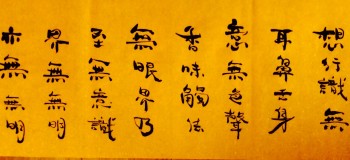 想行識無
耳鼻舌身
意無色聲
香味觸法
無眼界乃
至無意識
界無無明
亦無無明